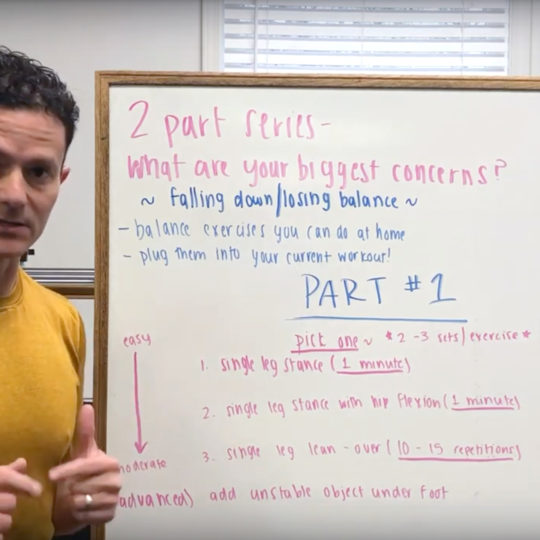 2 part series -
What are your biggest concerns?
~ falling down/losing balance ~
- balance exercises you can do at home
- plug them into your current workout!
PART #1
pick one ~ *2-3 sets/exercise*
easy
1. single leg stance (1 minute)
2. single leg stance with hip flexion (1 minute)
3. single leg lean-over (10-15 repetitions)
moderate
(advanced) add unstable object under foot